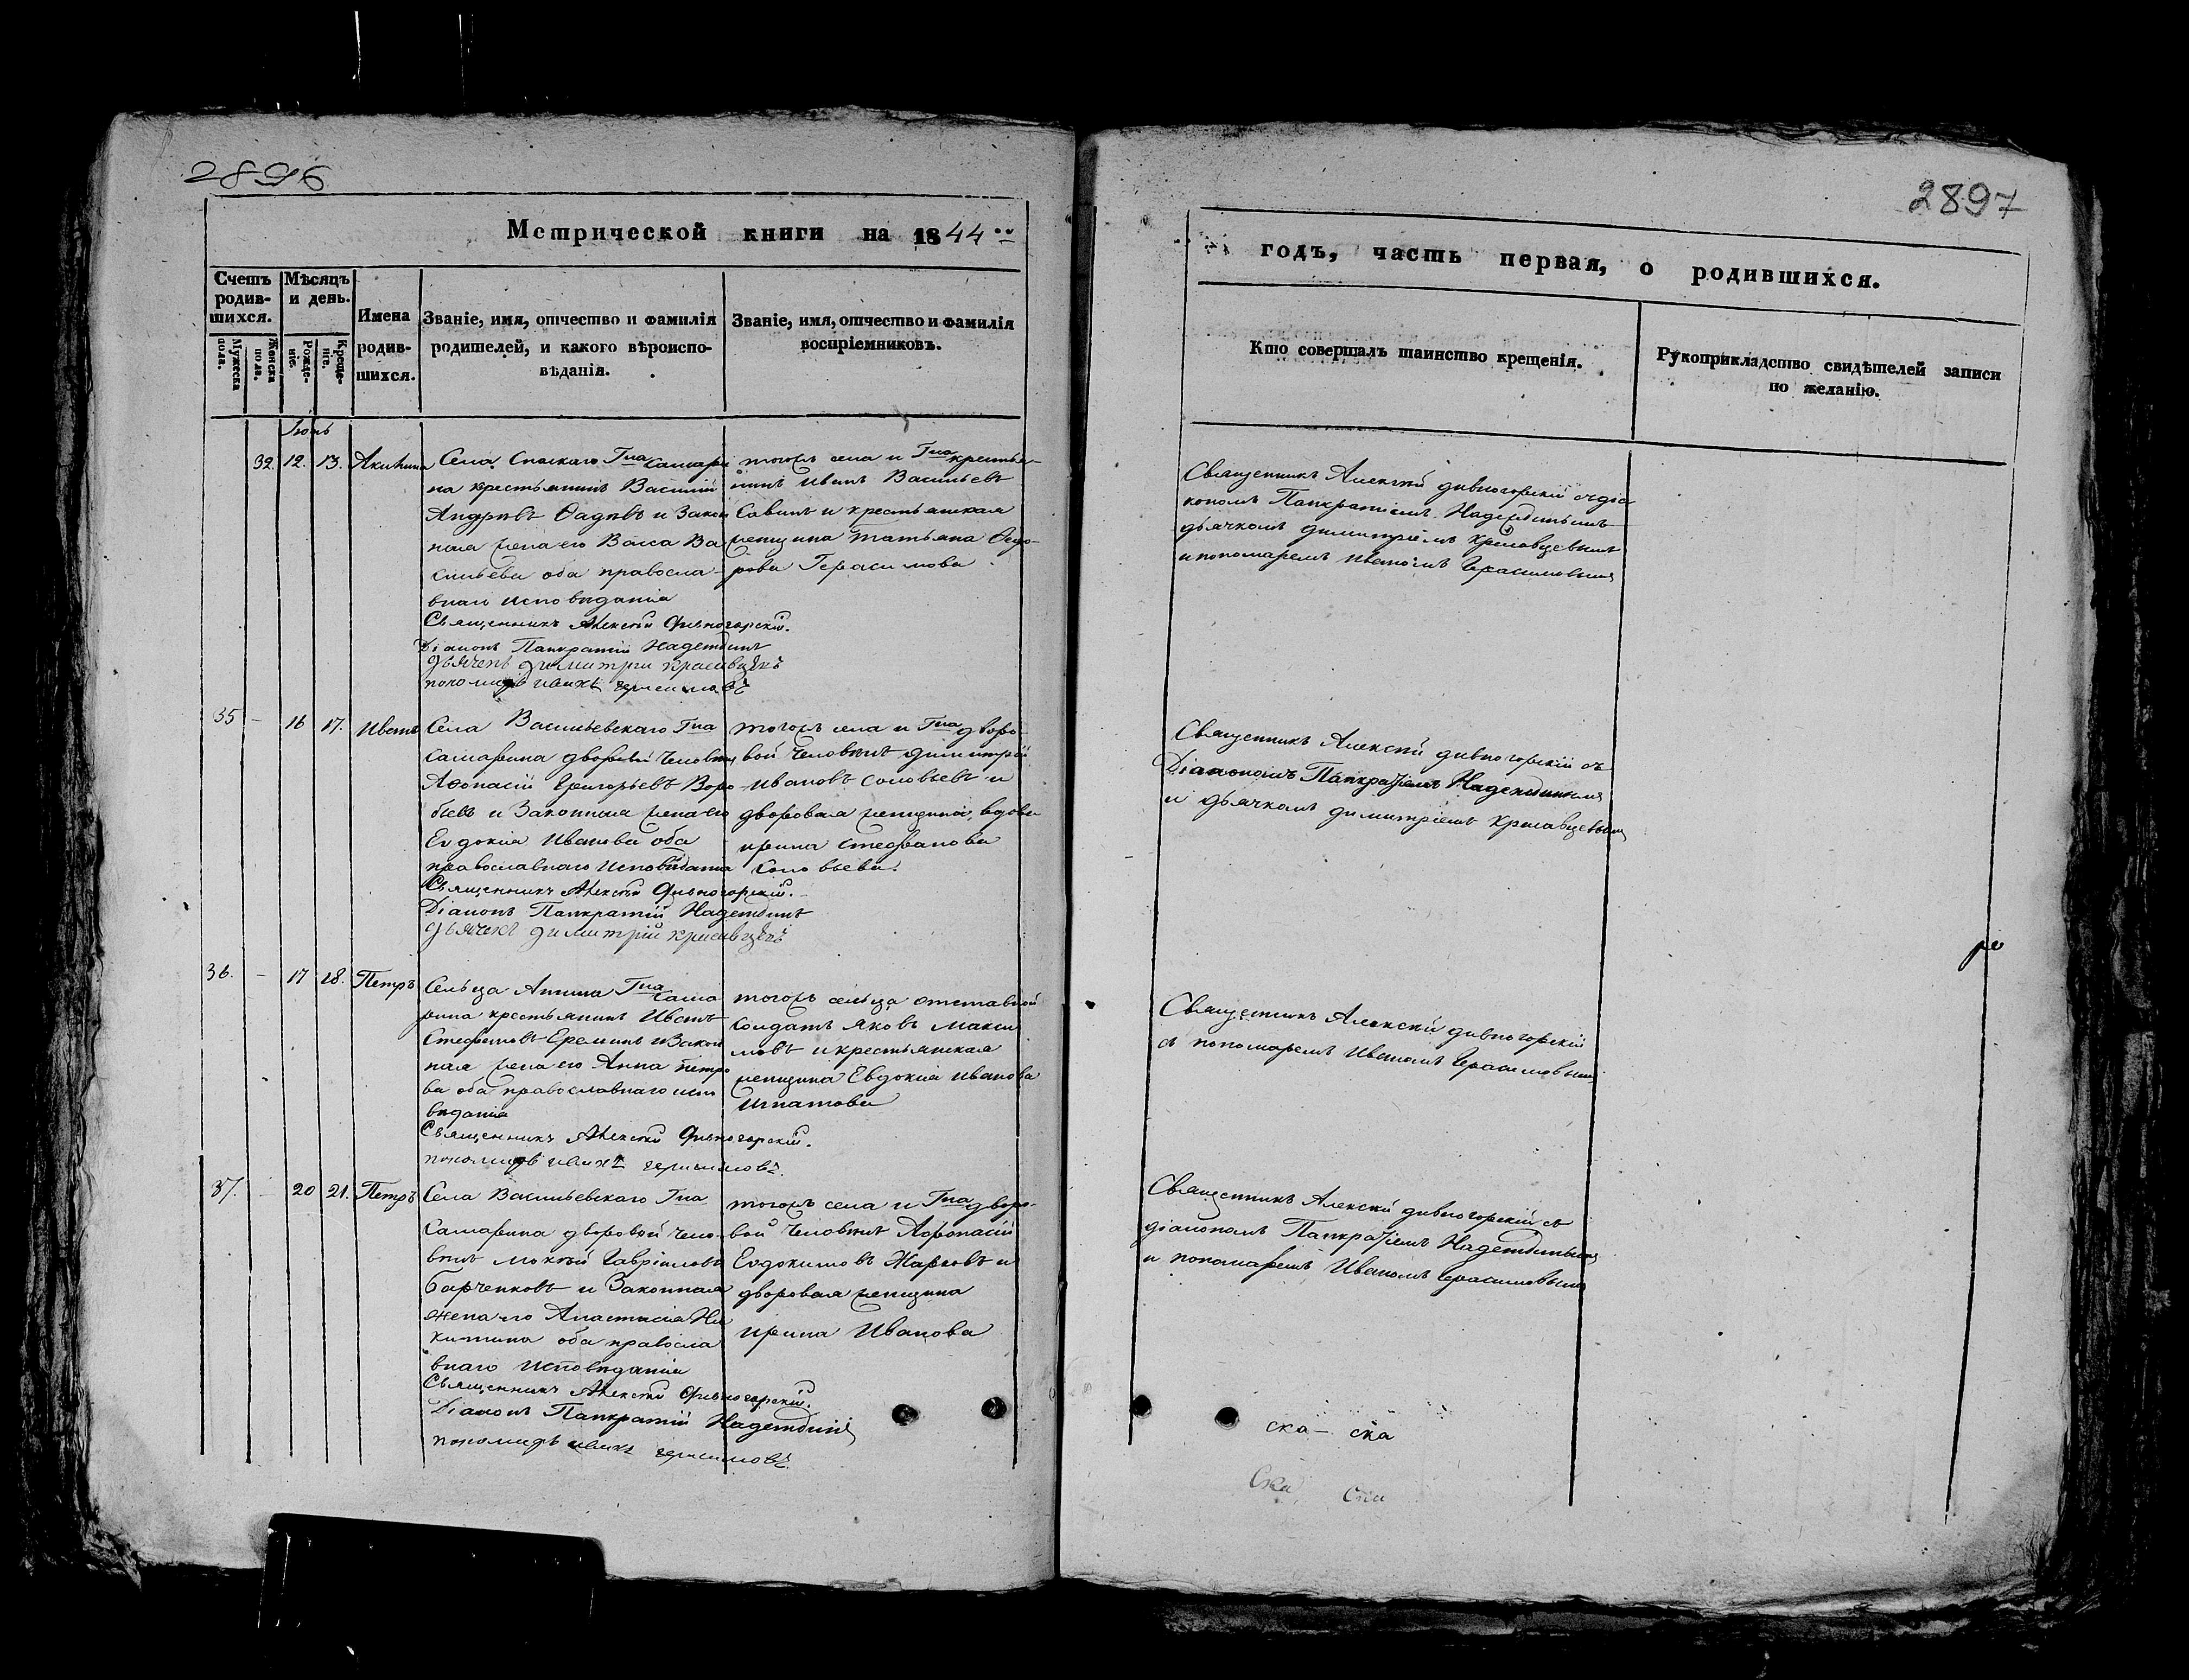 2896
Метрической книги на 1844
Счетъ родив-шихся.
Мѣсяцъ и день.
Мужеска пола.
Женска пола.
Рожде-ніе.
Креще-ніе.
Имена
родив-
шихся.
Званіе, имя, отчество и фамилія
родителей, и какого вѣроиспо-
вѣданія.
Званіе, имя, отчество и фамилія
воспріемниковъ.
Іюнь
32. 12. 13. Акилина
Села Спаскаго Гна Самари
на крестьянинъ Василій
Андреевъ Фадѣевъ и закон
ная жена его Васса Ва
сильева оба правосла-
внаго исповѣданія
Священникъ Алексѣй Дивногорскій.
Діаконъ Панкратій Надеждинъ
дьячекъ димитрій красавцевъ
пономарь иванъ герасимовъ
тогожъ села и Гна крестья-
нинъ Иванъ Васильевъ
Савинъ и крестьянская
женщина татьяна Ѳедо-
рова Герасимова
35 – 16 17. Иванъ
Села Васильевскаго Гна
Самарина дворовый человѣкъ
Аѳонасій Григорьевъ Воро
бьевъ и Законная жена его
Евдокія Иванова оба
православнаго исповѣданія
Священникъ Алексѣй Дивногорскій.
Діаконъ Панкратій Надеждинъ
дьячекъ димитрій красавцевъ
тогожъ села и Гна дворо-
вой человѣкъ димитрій
ивановъ соловьевъ и
дворовая женщина, вдова
ирина стефанова
соловьева.
36. – 17 18. Петръ
Сельца Гна Сама
рина крестьянинъ Иванъ
Стефановъ Ереминъ и Закон
ная жена его Анна петро
ва оба православнаго испо
вѣданія
Священникъ Алексѣй Дивногорскій.
пономарь иванъ герасимовъ
тогожъ сельца отставной
солдатъ яковъ макси
мовъ и крестьянская
женщина Евдокія иванова
Игнатова
37. 20 21. Петръ
Села Васильевскаго Гна
Самарина дворовой чело-
вѣкъ мокѣй Гавріиловъ
Барченковъ и Законная
жена его Анастасія Ни
китина оба правосла
внаго исповѣданія
Священникъ Алексѣй Дивногорскій.
Діаконъ Панкратій Надеждинъ
пономарь иванъ герасимовъ
тогожъ села и Гна дворо-
вой человѣкъ Аѳонасій
Евдокимовъ Жарковъ и
дворовая женщина
ирина Иванова
2897
годъ, часть первая, о родившихся.
Кто совершалъ таинство крещенія.
Рукоприкладство свидѣтелей записи
по желанію.
Священникъ Алексѣй дивногорскій съ діа
кономъ Панкратіемъ Надеждинымъ
дьячкомъ димитріемъ красавцевымъ
и пономаремъ Иваномъ Герасимовымъ
Священникъ Алексѣй дивногорскій съ
Діакономъ Панкратіемъ Надеждинымъ
и дьячкомъ димитріемъ красавцевымъ
Священникъ Алексѣй дивногорскій
съ пономаремъ Иваномъ Герасимовымъ
Священникъ Алексѣй дивногорскій съ
діакономъ Панкратіемъ Надеждинымъ
и пономаремъ Иваномъ Герасимовымъ
ска – ска
Ска Ска